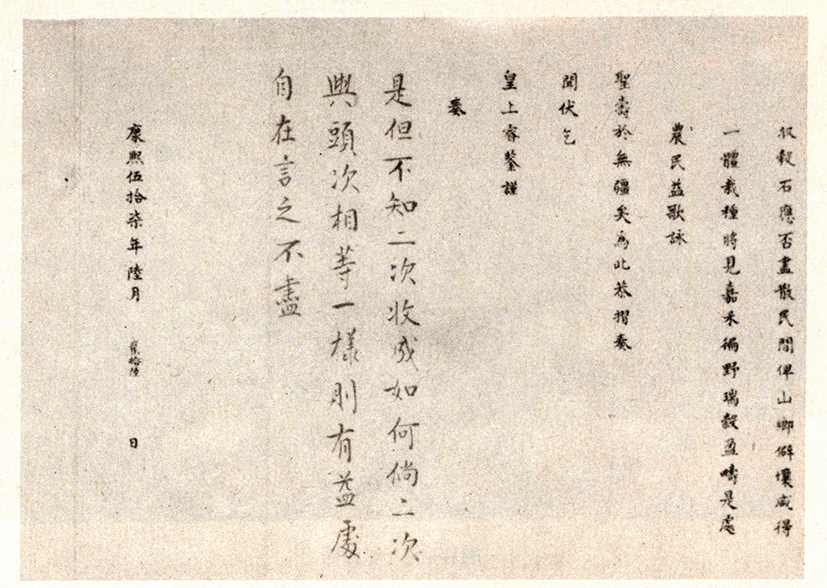 收穀石應否盡散民間俾山鄉僻壤咸得
一體栽種將見嘉禾徧野瑞穀盈疇是處
農民益歌詠
聖壽於無疆矣為此恭摺奏
聞伏乞
皇上睿鑒謹
奏
是但不知二次收成如何倘二次
與頭次相等一樣則有益處
自在言之不盡
康熙伍拾柒年陸月 貳拾陸 日